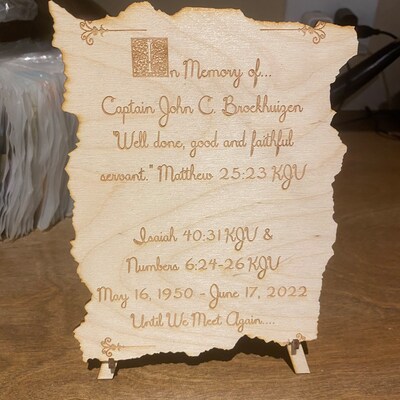 In Memory of...
Captain John C. Broekhuizen
"Well done, good and faithful
servant." Matthew 25:23 KJV
Isaiah 40:31 KJV &
Numbers 6:24-26 KJV
May 16, 1950 - June 17, 2022
Until We Meet Again....